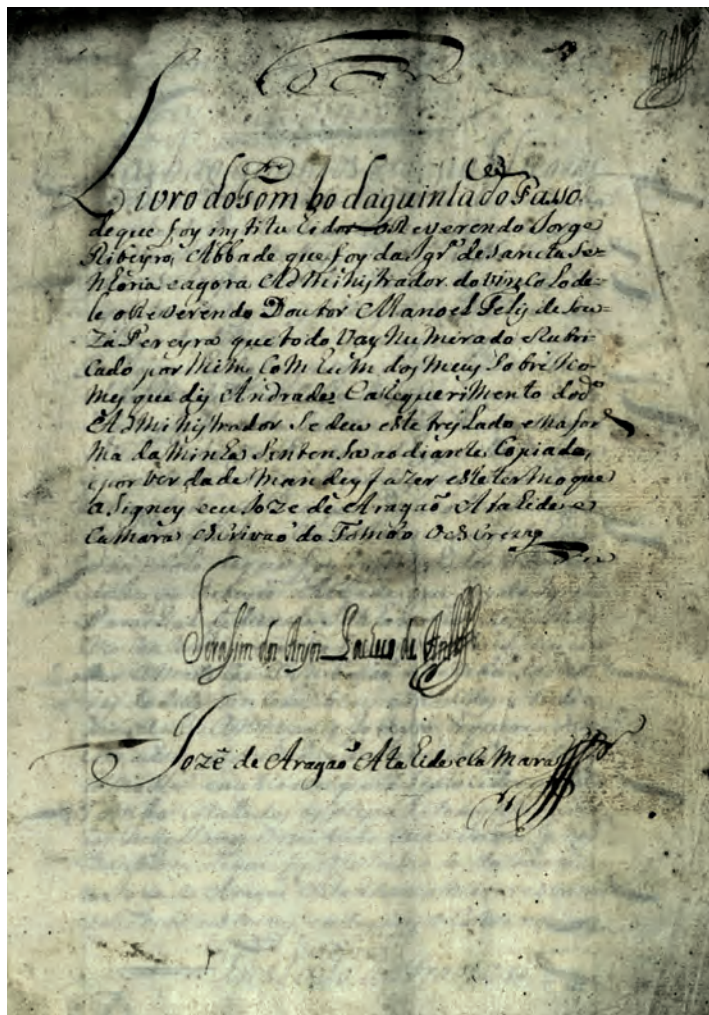 Livro do tombo da quinta do Passo,
de que foy instituEidor o Reverendo Jorge
Ribeyro, Abbade que foy da Igrª de Sancta Se-
nhoria e agora Administrador do vinColo de-
le o Reverendo Doutor Manoel Felis de Sou-
za Pereyra que todo vay Numirado e Rubri-
cado por Mim Com Eum dos Meus Sobre No-
mes que dis Andrade, e a Requerimento do dº
Administrador Se deu este treslado e na for-
ma da Minha Sentensa ao diante Copiada,
e por verdade Mandey fazer este termo que
aSigney e eu Joze de Aragaõ Ataide e
Camara escrivaõ do Tombo o escrevy
Serafim dos Anjos Pacheco de Andrade
Jozê de Aragaõ Ataide e Camara